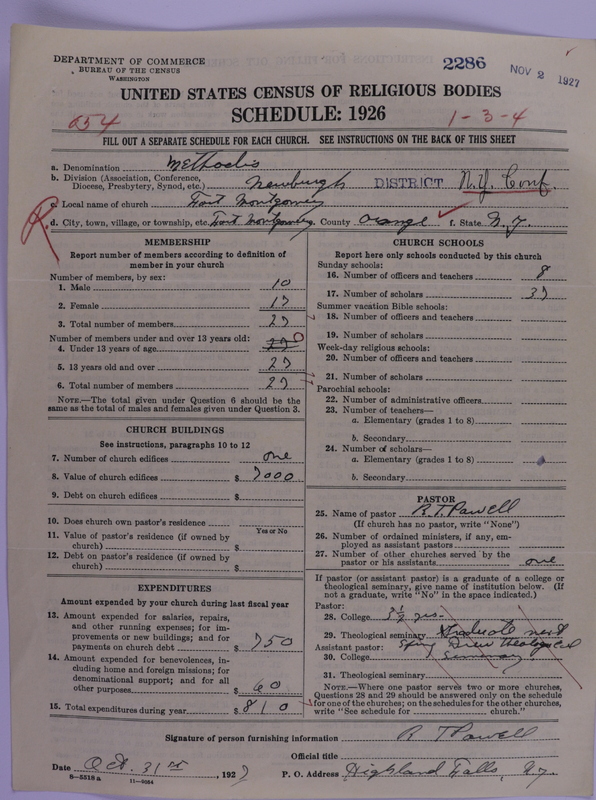 DEPARTMENT OF COMMERCE
BUREAU OF THE CENSUS
WASHINGTON
2286
NOV 2 1927
UNITED STATES CENSUS OF RELIGIOUS BODIES
SCHEDULE: 1926
054
1-3-4
FILL OUT A SEPARATE SCHEDULE FOR EACH CHURCH. SEE INSTRUCTIONS ON THE BACK OF THIS SHEET
a. Denomination Methodis
b. Division (Association, Conference, Diocese, Presbytery, Synod, etc.) Newburgh DISTRICT N.Y. Conf.
c. Local name of church Fort Montgomery
d. City, town, village, or township, etc. Fort Montgomery e. County Orange f. State N.Y.
R.
MEMBERSHIP
Report number of members according to definition of
member in your church
Number of members, by sex:
1. Male 10
2. Female 17
3. Total number of members 27
Number of members under and over 13 years old:
4. Under 13 years of age 27 0
5. 13 years old and over 27
6. Total number of members 27
NOTE.—The total given under Question 6 should be
same as the total of males and females given under Question 3.
CHURCH BUILDINGS
See instructions, paragraphs 10 to 12
7. Number of church edifices one
8. Value of church edifices $ 7000
9. Debt on church edifices $
10. Does church own pastor's residence
Yes or No
11. Value of pastor's residence (if owned by
church) $
12. Debt on pastor's residence (if owned by
church) $
EXPENDITURES
Amount expended by your church during last fiscal year
13. Amount expended for salaries, repairs,
and other running expenses; for im-
provements or new buildings; and for
payments on church debt $ 750
14. Amount expended for benevolences,
including home and foreign missions; for
denominational support; and for all
other purposes 60
15. Total expenditures during year $ 810
CHURCH SCHOOLS
Report here only schools conducted by this church
Sunday schools:
16. Number of officers and teachers 8
17. Number of scholars 37
Summer vacation Bible schools:
18. Number of officers and teachers
19. Number of scholars
Week-day religious schools:
20. Number of officers and teachers
21. Number of scholars
Parochial schools:
22. Number of administrative officers
23. Number of teachers—
a. Elementary (grades 1 to 8)
b. Secondary
24. Number of scholars—
a. Elementary (grades 1 to 8)
b. Secondary
PASTOR
25. Name of pastor R.T. Powell
(If church has no pastor, write "None")
26. Number of ordained ministers, if any, em-
ployed as assistant pastors
27. Number of other churches served by the
pastor or his assistants one
If pastor (or assistant pastor) is a graduate of a college or
theological seminary, give name of institution below. (If
not a graduate, write "No" in the space indicated.)
Pastor:
28. College 3½ yrs.
29. Theological seminary Graduate next
Assistant pastor: Spring Drew Theological
30. College Seminary
31. Theological seminary
NOTE.—Where one pastor serves two or more churches,
Questions 28 and 29 should be answered only on the schedule
for one of the churches; on the schedules for the other churches,
write "See schedule for church."
Signature of person furnishing information R T Powell
Official title
Date Oct. 31st, 1927 P. O. Address Highland Falls, N.Y.
8—5518 a 11—9064